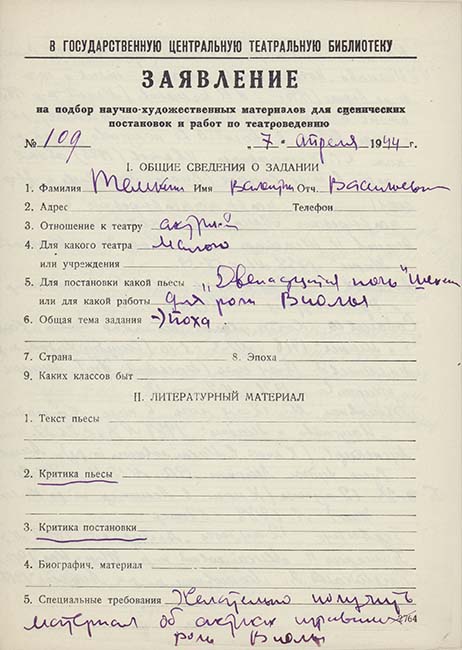 В ГОСУДАРСТВЕННУЮ ЦЕНТРАЛЬНУЮ ТЕАТРАЛЬНУЮ БИБЛИОТЕКУ
ЗАЯВЛЕНИЕ
на подбор научно-художественных материалов для сценических
постановок и работ по театроведению
№ 109 „7“ апреля 1944 г.
I. ОБЩИЕ СВЕДЕНИЯ О ЗАДАНИИ
1. Фамилия Имя Отч. Васильевич
2. Адрес Телефон
3. Отношение к театру
4. Для какого театра Малого
или учреждения
5. Для постановки какой пьесы „Двенадцатая ночь"
или для какой работы для роли Виолы
6. Общая тема задания Эпоха
7. Страна 8. Эпоха
9. Каких классов быт
II. ЛИТЕРАТУРНЫЙ МАТЕРИАЛ
1. Текст пьесы
2. Критика пьесы
3. Критика постановки
4. Биографич. материал
5. Специальные требования Желательно получить
материал об игравших 2764
роль Виолы